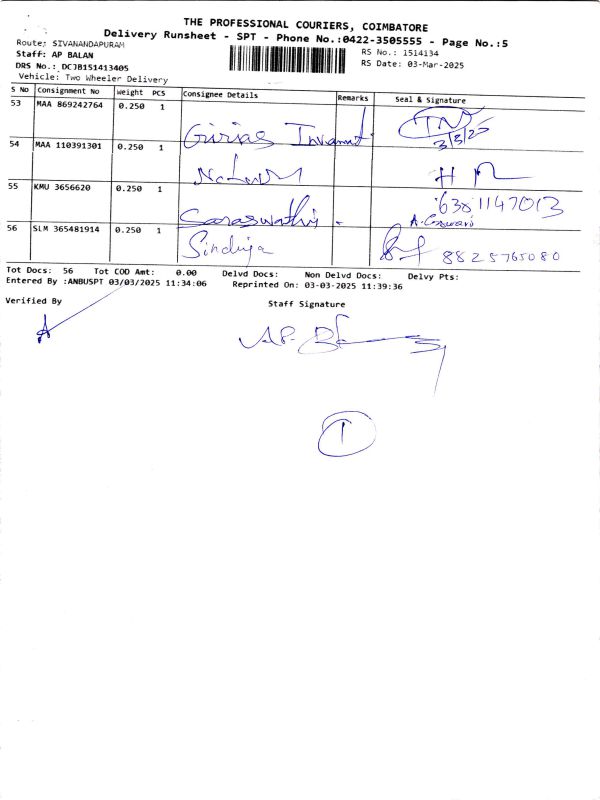 THE PROFESSIONAL COURIERS, COIMBATORE
Delivery Runsheet - SPT - Phone No.:0422-3505555 - Page No.:5
Route: SIVANANDAPURAM
Staff: AP BALAN
DRS No.: DCJB151413405
Vehicle: Two Wheeler Delivery
RS No.: 1514134
RS Date: 03-Mar-2025
S No Consignment No Weight PCS Consignee Details Remarks Seal & Signature
53 MAA 869242764 0.250 1 Girias 3/3/25
54 MAA 110391301 0.250 1
55 KMU 3656620 0.250 1 Saraswathi. 6381147013
56 SLM 365481914 0.250 1 Sinduja 8825765080
Tot Docs: 56 Tot COD Amt: 0.00 Delvd Docs: Non Delvd Docs: Delvy Pts:
Entered By :ANBUSPT 03/03/2025 11:34:06 Reprinted On: 03-03-2025 11:39:36
Verified By Staff Signature
1